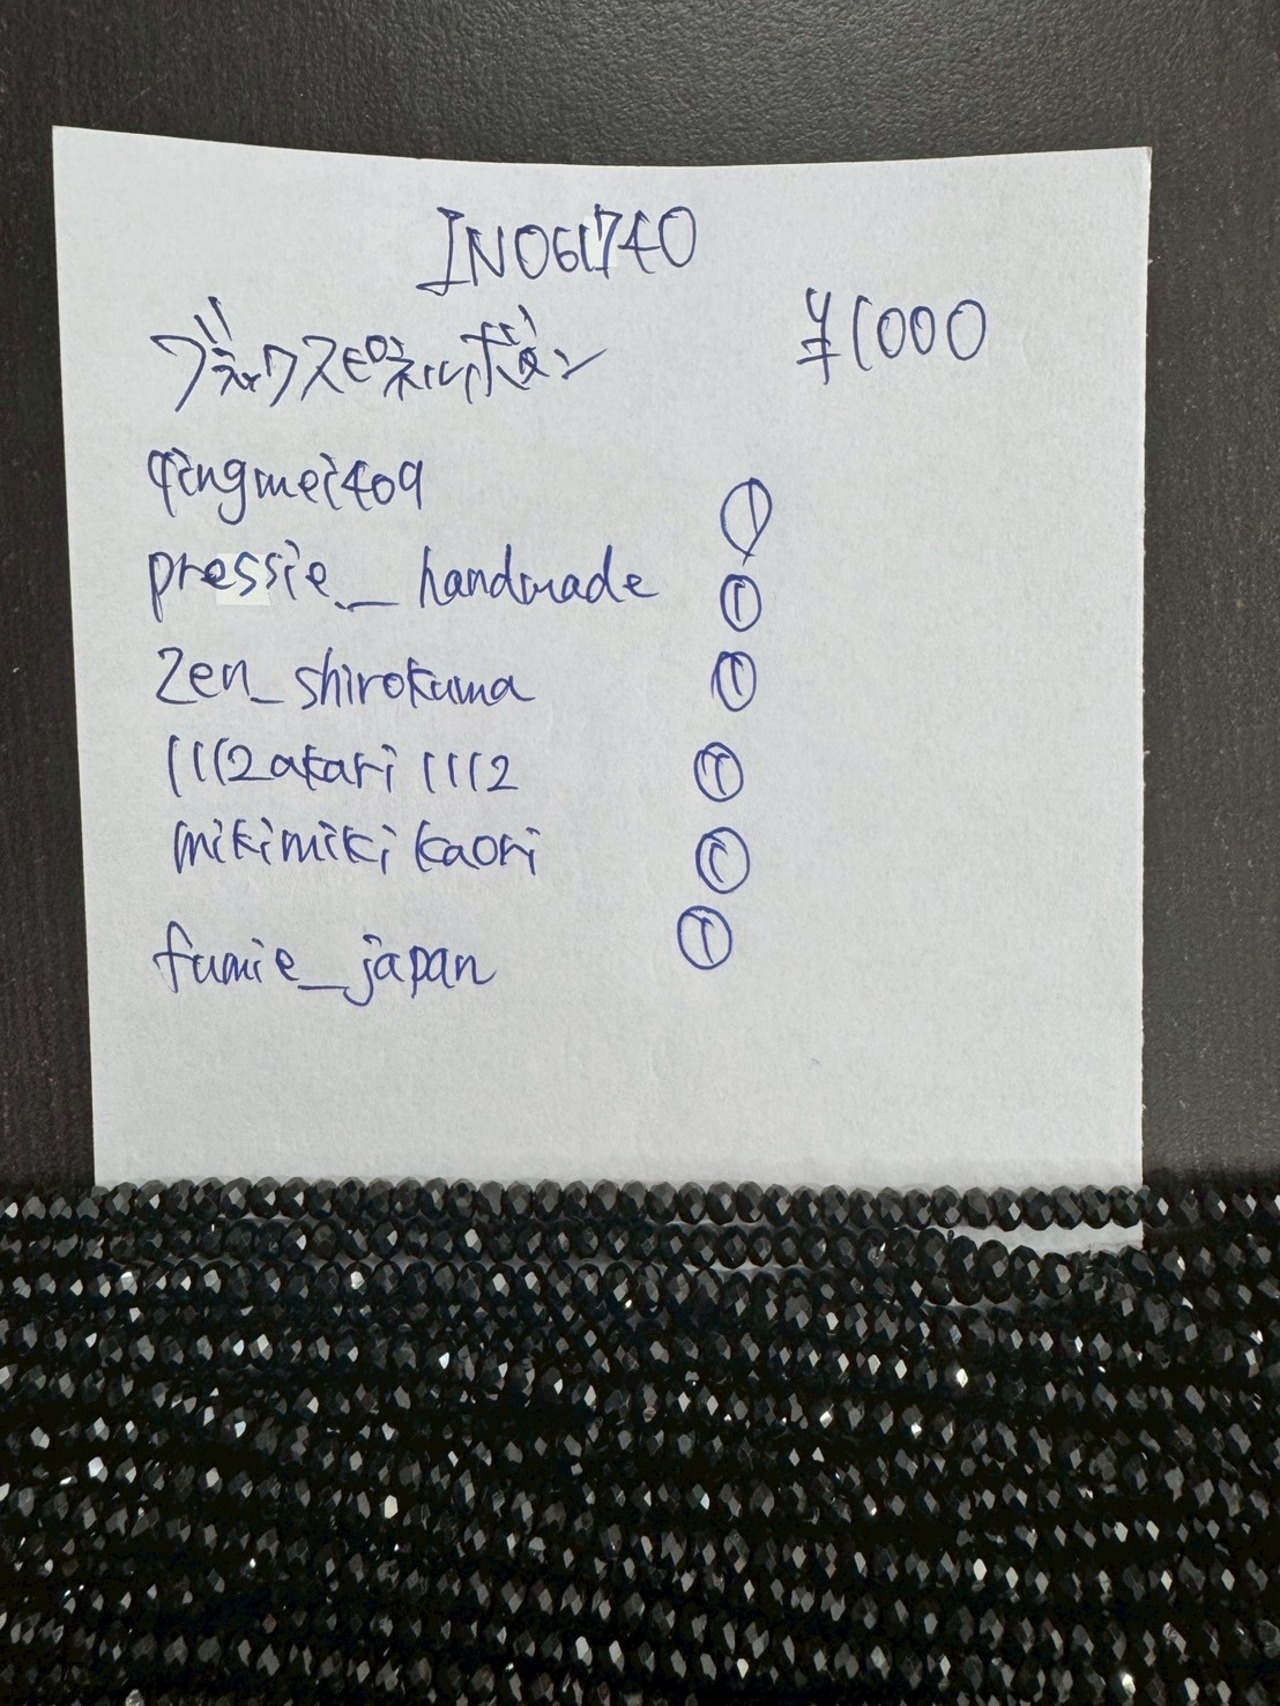 IN061740
ブラックスピネルボタン ¥1000
qingmei409 ①
pressie._handmade ①
zen_shirokuma ①
1112akari1112 ①
mikimikikaori ①
fumie_japan ①